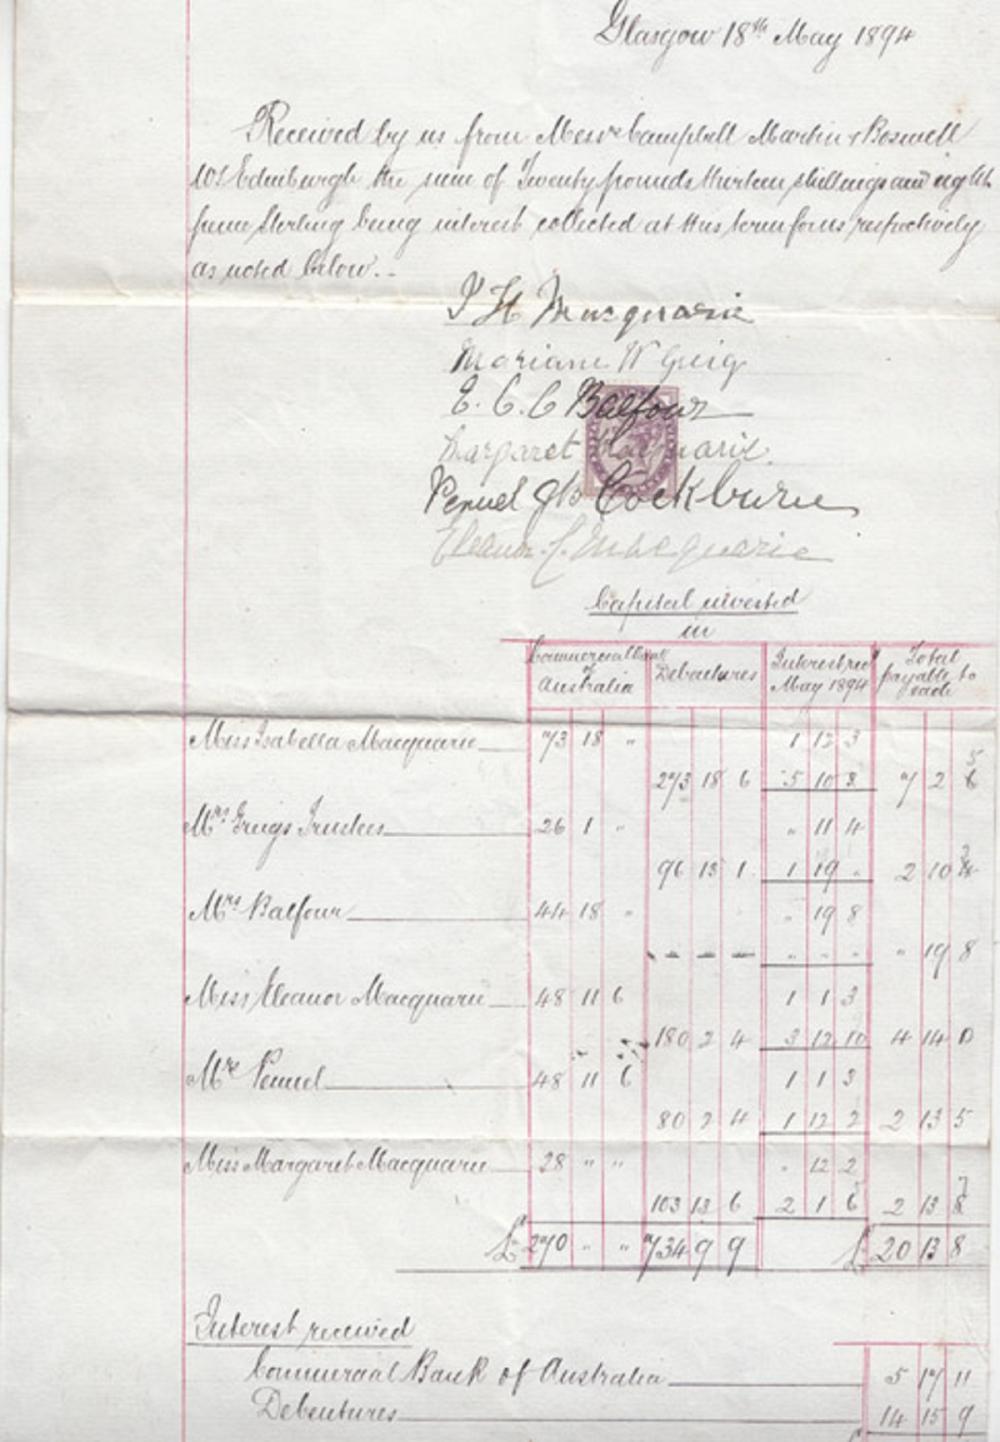 Glasgow 18th May 1894
Received by us from Messrs Campbell Martin & Boswell
WS Edinburgh the sum of Twenty pounds thirteen shillings and eight
pence Sterling being interest collected at this term for us respectively
as noted below..
I H Macquarie
Mariane W Greig
E. C. C Balfour
Margaret Macquarie.
Penuel Cockburn
Eleanor C. Macquarie
Capital invested
in
Commercial Bank of Australia Debentures Interest rec'd May 1894 Total payable to each
Miss Isabella Macquarie 73 18 " 1 12 3
273 18 6 5 10 3 7 2 6 5
Mrs Greigs Trustees 26 1 " " 11 4
96 13 1 1 19 " 2 10 4 3
Mrs Balfour 44 18 " " 19 8
- - - - " " " " 19 8
Miss Eleanor Macquarie 48 11 6 1 1 3
180 2 4 3 12 10 4 14 0
Mrs Penuel 48 11 6 1 1 3
80 2 4 1 12 2 2 13 5
Miss Margaret Macquarie 28 " " " 12 2
103 13 6 2 1 6 2 13 8 7
£270 " " 734 9 9 £20 13 8
Interest received
Commercial Bank of Australia 5 17 11
Debentures 14 15 9